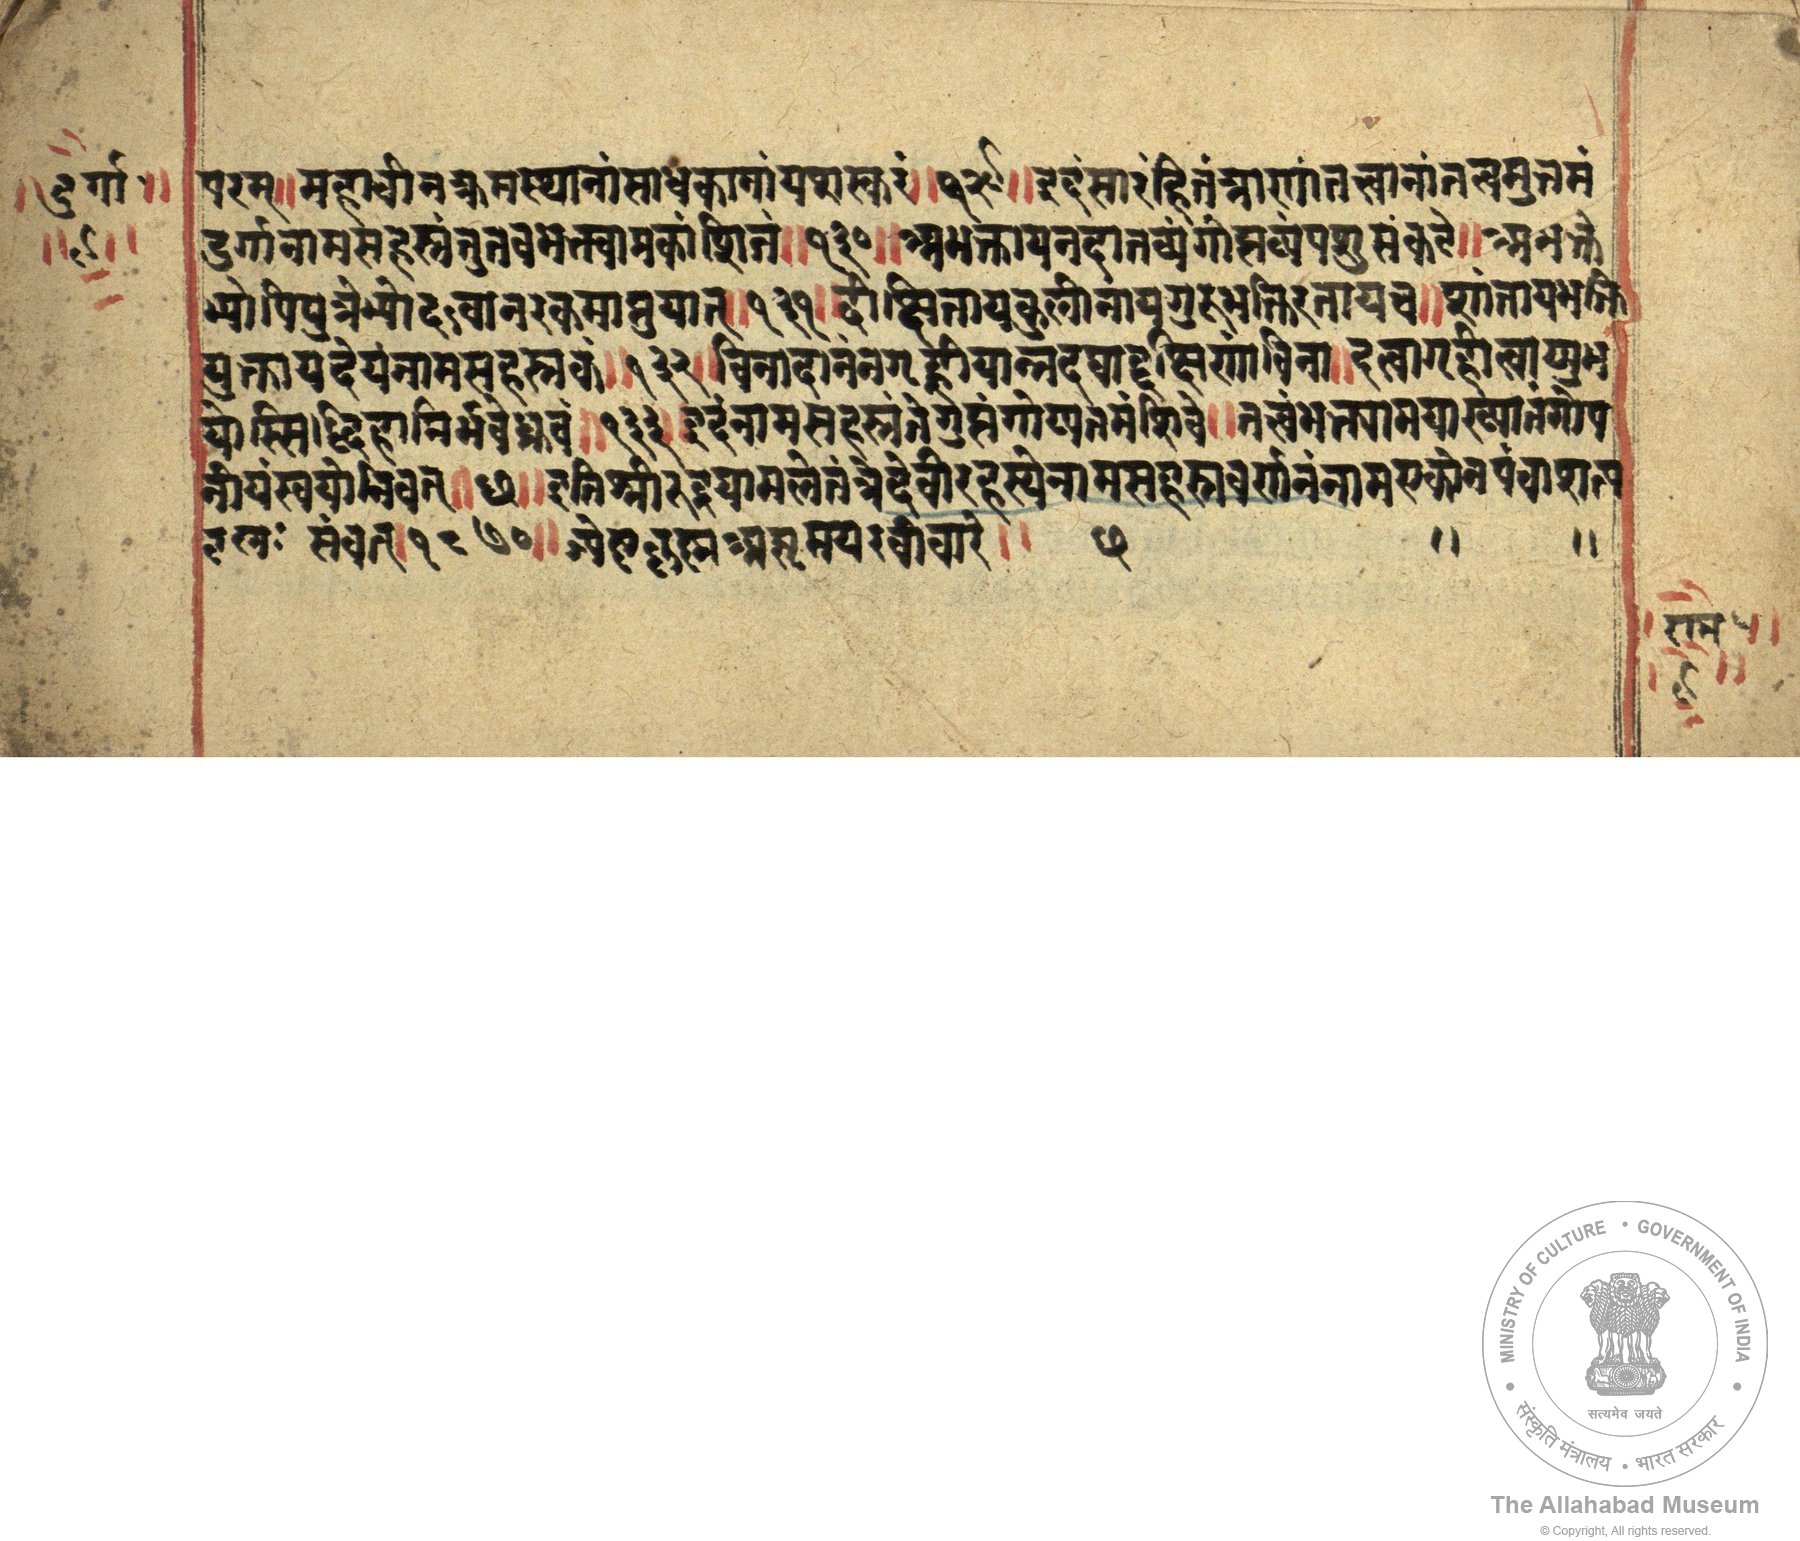 ॥दुर्गा॥
॥९॥
परम्॥महाचीनक्रमस्थानांसाधकानांयशस्करं॥१२९॥इदंसारंहितंत्राणांतत्वानांतत्वमुत्तमं
दुर्गानामसहस्रंतुतवभक्त्वामकाशितं॥१३०॥अभक्तायनदातव्यंगोप्तव्यंपशुसंकटे॥अभक्ते
भ्योपिपुत्रेभ्योदत्वानरकमाप्नुयात्॥१३१॥दीक्षितायकुलीनायगुरूभक्तिरतायच॥शांतायभक्ति
युक्तायदेयंनामसहस्रकं॥१३२॥विनादानंनगृह्णीयान्नदद्याद्दक्षिणांविना॥दत्वागृहीत्वाप्युभ
योस्सिद्धिहानिर्भवेध्रुवं॥१३३॥इदंनामसहस्रंतेगुह्यंगोप्यतमंशिवे॥तत्वंभक्त्यामयाख्यातंगोप
नीयंस्वयोनिवत्॥छ॥इतिश्रीरुद्रयामलेतंत्रेदेवीरहस्येनामसहस्रवर्णनंनामएकोनपंचाशत्प
टलः संवत्॥१८७०॥ रवीवारे॥ छ ॥ ॥
॥राम॥
॥९॥
MINISTRY OF CULTURE • GOVERNMENT OF INDIA
सत्यमेव जयते
संस्कृति मंत्रालय • भारत सरकार
The Allahabad Museum
© Copyright, All rights reserved.